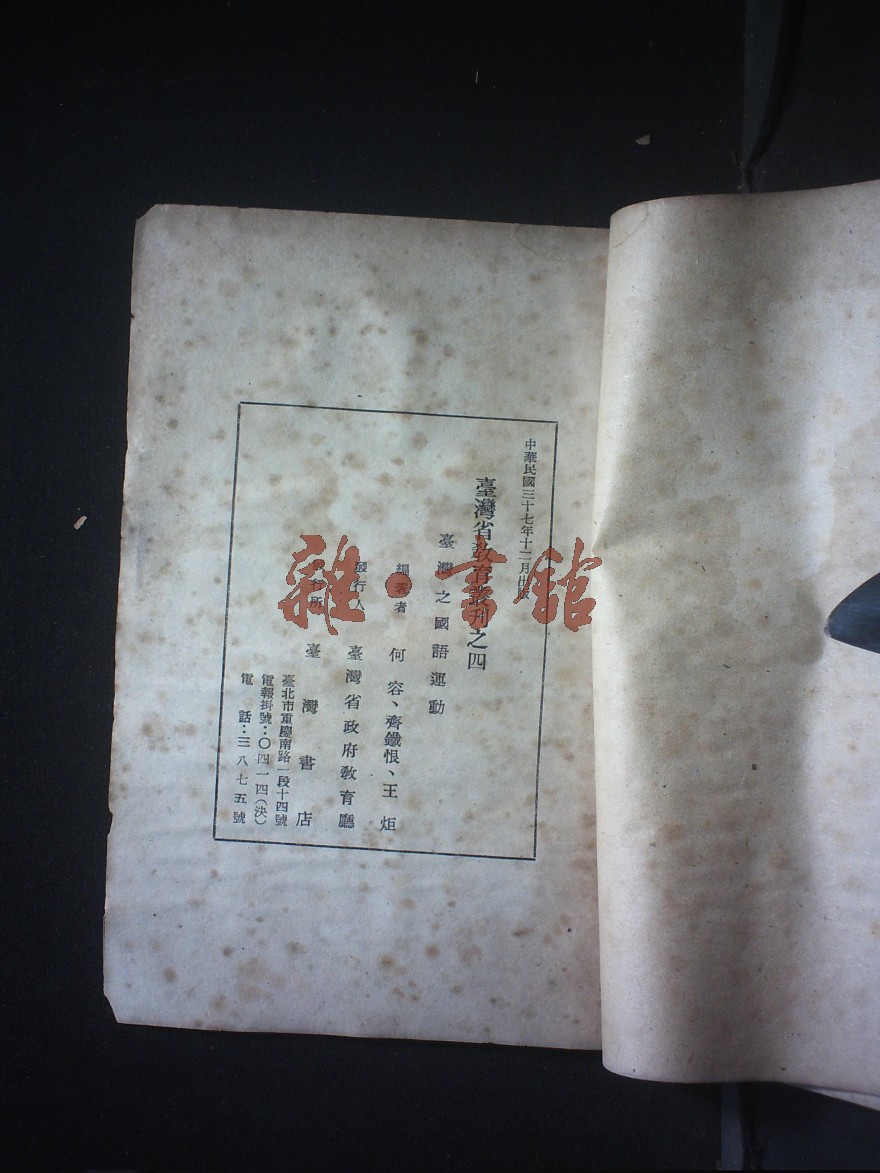 中華民國三十七年十二月出版
臺灣省教育叢刊之四
臺灣之國語運動
編著者 何容、齊鐵恨、王炬
發行人 臺灣省政府教育廳
發行所 臺灣書店
臺北市重慶南路一段十四號
電報掛號：〇四一四(決)
電話：三八七五號
雜·書館